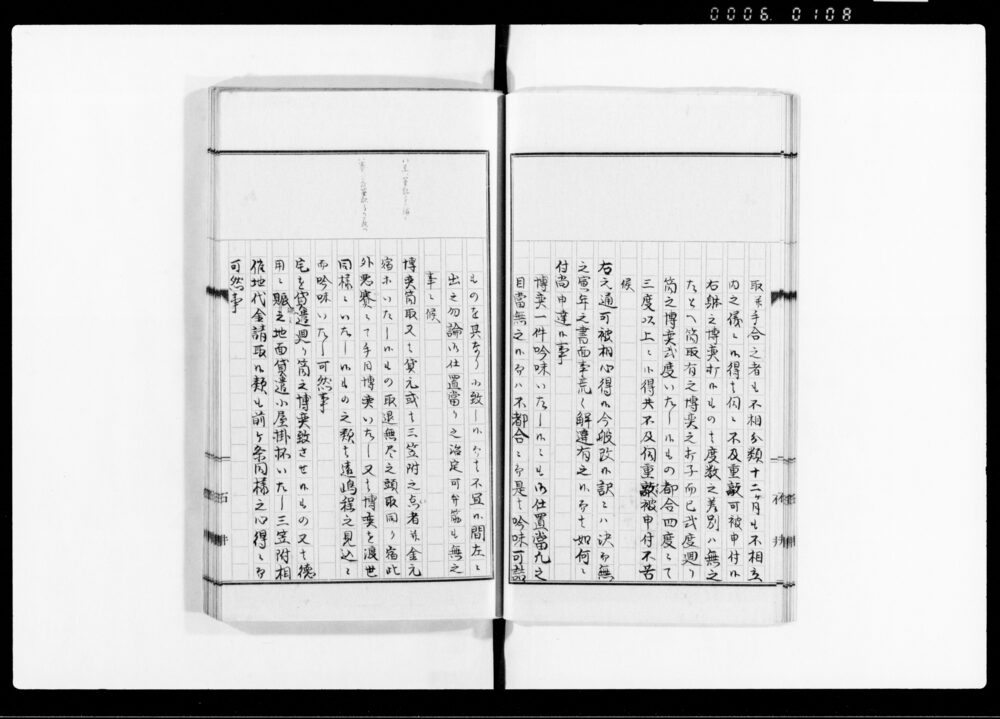 0006. 0108
取米手合之者も不相分類十二ヶ月も不相立
内之儀ニ候得共伺ニ不及重敲可被申付候
右躰之博奕打候もの者度数之差別ハ無之
たとへ筒取有之博奕之打子而已弐度廻り
筒之博奕弐度いたし候もの都合四度ニて
三度以上ニ候得共不及伺重敲被申付不苦
候
右之通可被相心得候今般改候訳ニハ決而無
之寅年之書面事荒く解違有之候而者如何ニ
付尚申達候事
博奕一件吟味いたし候ニも御仕置當九之
目當無之候而ハ不都合ニ而是者吟味可
ものを其なりニ致し候而者不宜候間左ニ
出之勿論御仕置當り之治定可弁筋も無之
事ニ候
博奕筒取又者貸元或者三笠附之点者并金元
宿ホいたし候もの取退無尽之頭取同り宿此
外悪賽ニて手目博奕いたし又者博奕を渡世
同様ニいたし候もの之類者遠嶋程之見込ニ
而吟味いたし可然事
宅を貸遣廻り筒之博奕致させ候もの又者徳
用ニ賑之地面貸遣小屋掛抔いたし三笠附相
催地代金請取候類も前ヶ条同様之心得ニ而
可然事